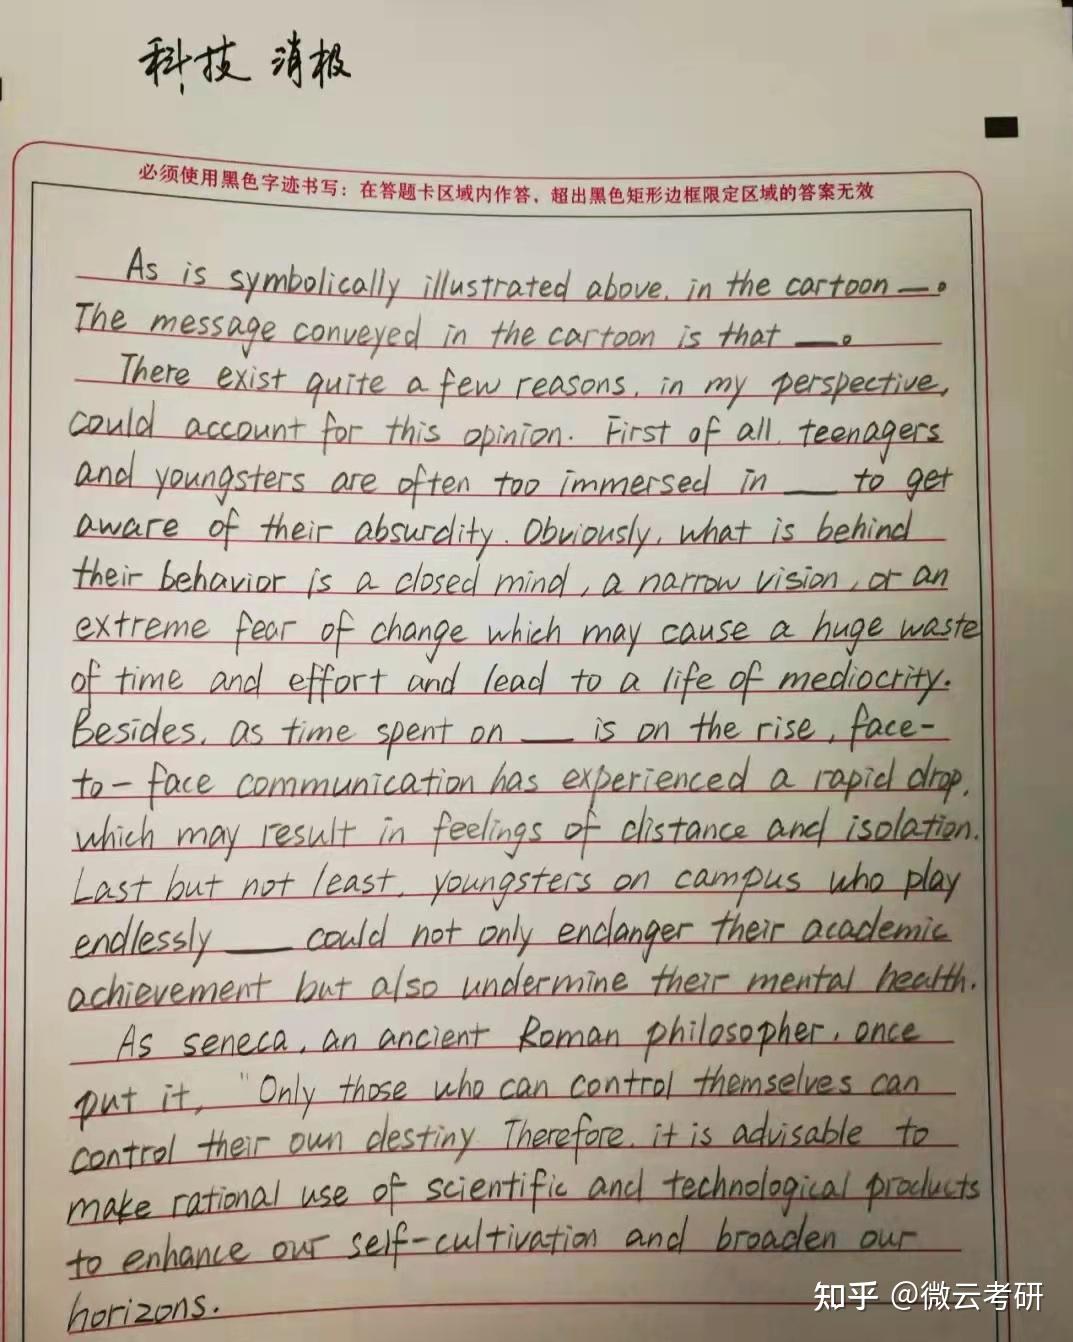 科技 消极
必须使用黑色字迹书写：在答题卡区域内作答，超出黑色矩形边框限定区域的答案无效
As is symbolically illustrated above, in the cartoon —。
The message conveyed in the cartoon is that —。
There exist quite a few reasons, in my perspective,
could account for this opinion. First of all, teenagers
and youngsters are often too immersed in — to get
aware of their absurdity. Obviously, what is behind
their behavior is a closed mind, a narrow vision, or an
extreme fear of change which may cause a huge waste
of time and effort and lead to a life of mediocrity.
Besides, as time spent on — is on the rise, face-
to-face communication has experienced a rapid drop,
which may result in feelings of distance and isolation.
Last but not least, youngsters on campus who play
endlessly — could not only endanger their academic
achievement but also undermine their mental health.
As seneca, an ancient Roman philosopher, once
put it, "Only those who can control themselves can
control their own destiny Therefore, it is advisable to
make rational use of scientific and technological products
to enhance our self-cultivation and broaden our
horizons.
知乎 @微云考研